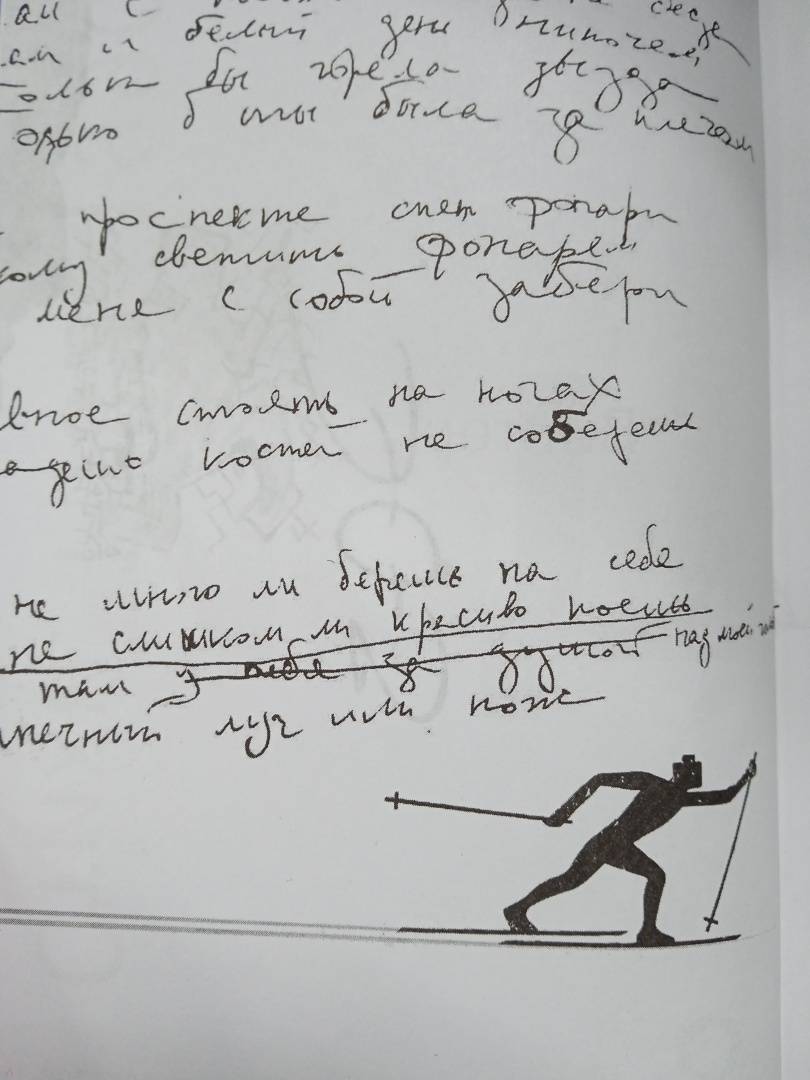 ам с
ам и белый день нипочем
только бы горела звезда
была за плечом
проспекте спят фонари
кому светить фонарем
меня с собой забери
вное стоять на ногах
костей не соберешь
не много ли берешь на себя
не слишком ли красиво поешь
там у тебя за душой над моей
нечный луч или нож